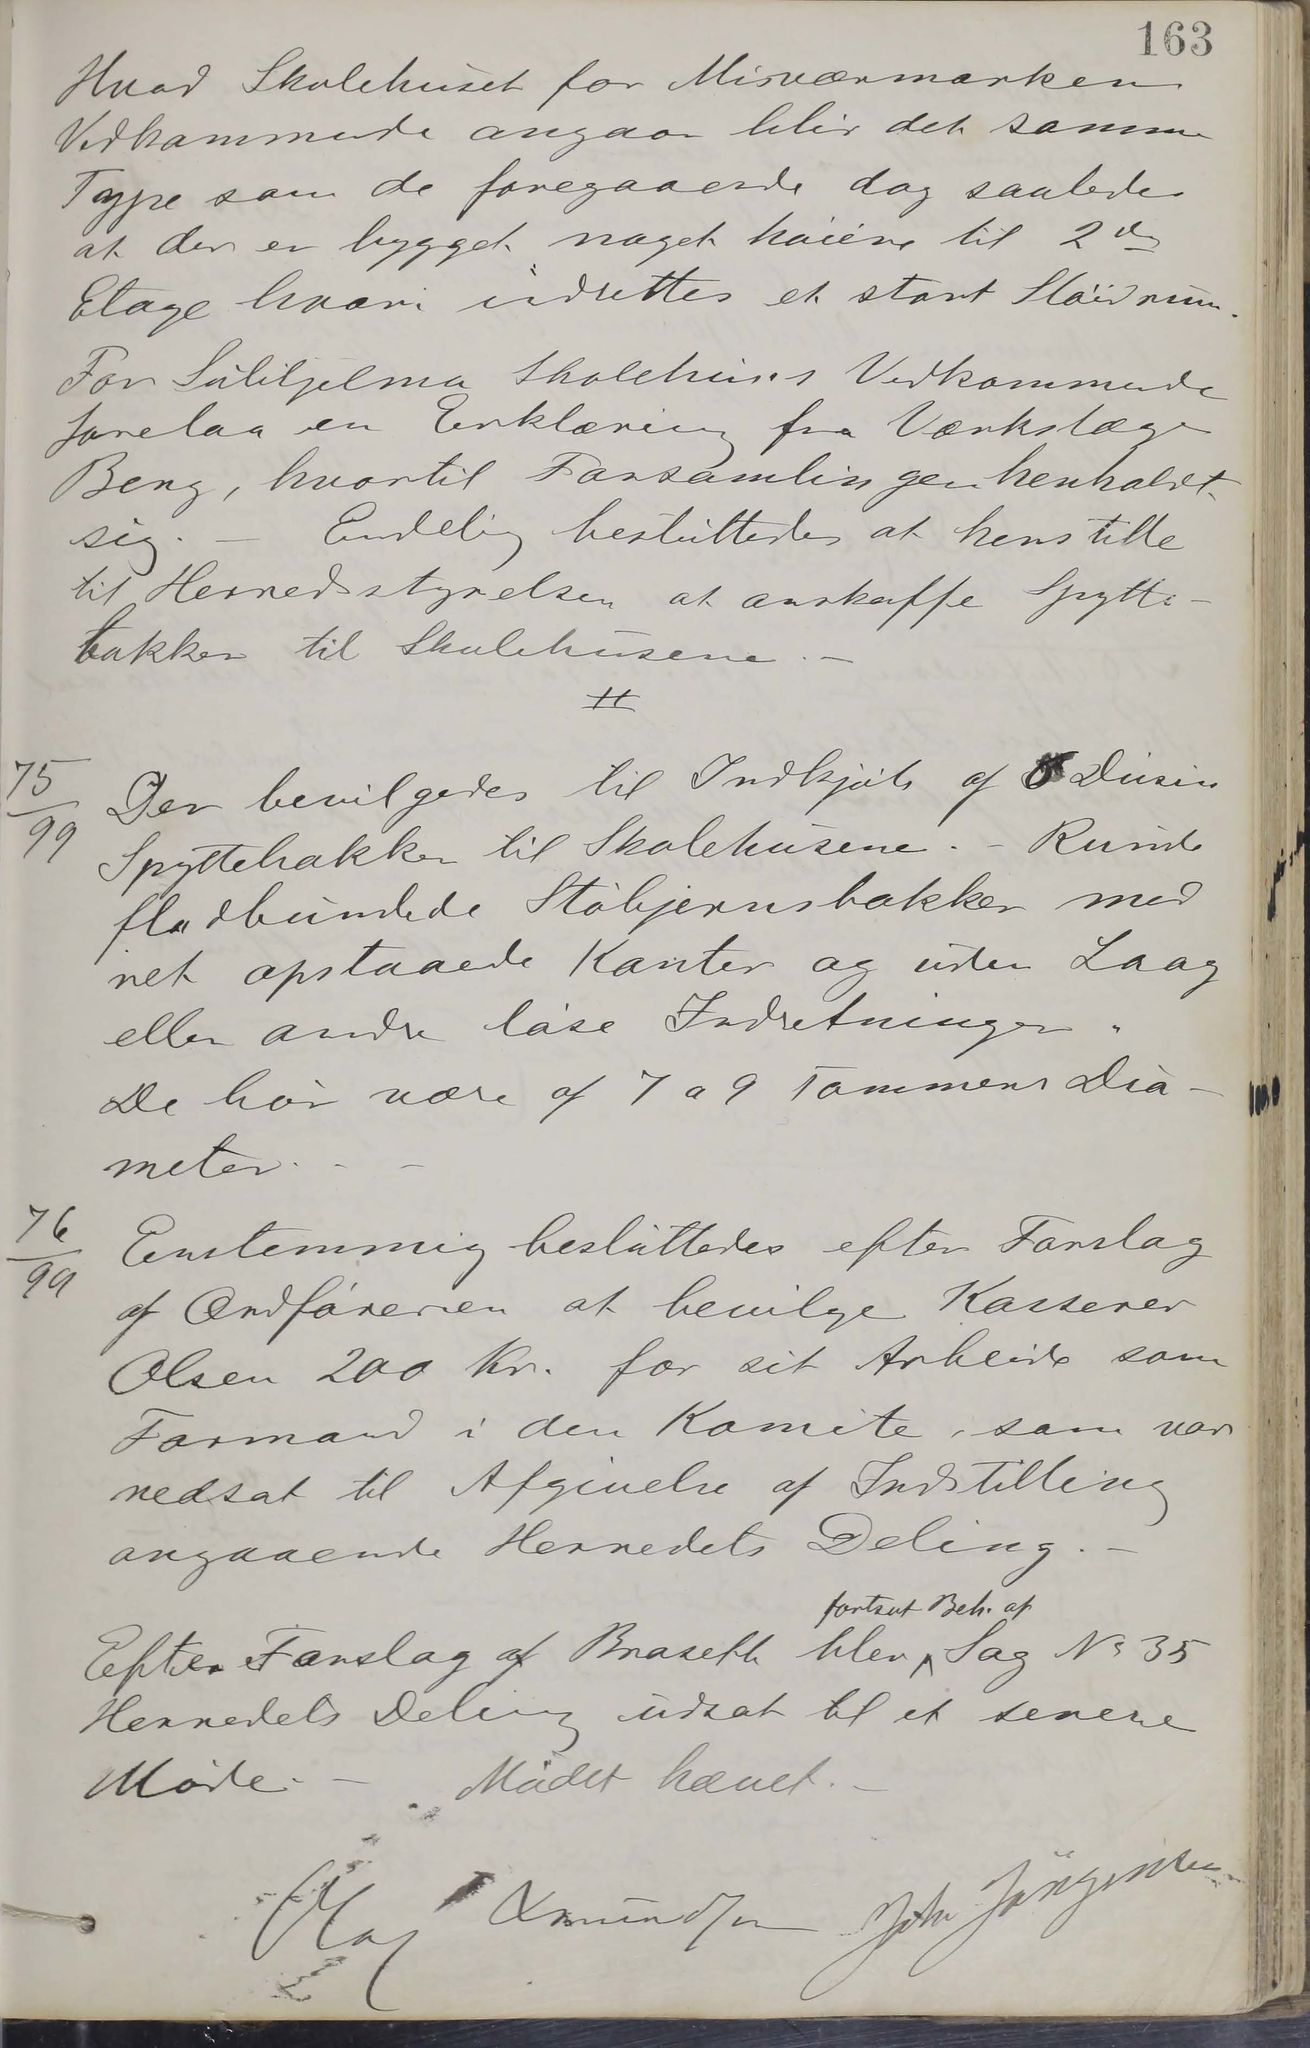 163
Hvad Skolehuset for Misværmarken
Vedkommende angaar blir det samme
Type som de foregaaende dog saaledes
at der er bygget noget høiere til 2den
Etage hvori indrettes et stort Sløidrum.
For Sulitjelma Skolehuses Vedkommende
forelaa en Erklæring fra Værkslæge
Berg, hvortil Forsamlingen henholdt
sig. - Endelig besluttedes at henstille
til Herredsstyrelsen at anskaffe Spytte-
bakker til Skolehusene. -
#
75/99 Der bevilgedes til Indkjøb af 5 Dusin
Spyttebakker til Skolehusene. - Runde
fladbundede Støbjernsbakker med
ret opstaaede Kanter og uden Laag
eller andre løse Indretninger.
De bør være af 7 a 9 Tommers Dia-
meter. - -
76/99 Enstemmig besluttedes efter Forslag
af Ordføreren at bevilge Kasserer
Olsen 200 Kr. for sit Arbeide som
Formand i den Komite, som var
nedsat til Afgivelse af Indstilling
angaaende Herredets Deling. -
fortsat Beh. af
Efter Forslag af Braseth blev Sag No 35
Herredets Deling udsat til et senere
Møde. - Mødet hævet. -
Amundsen Joh Jörgensen